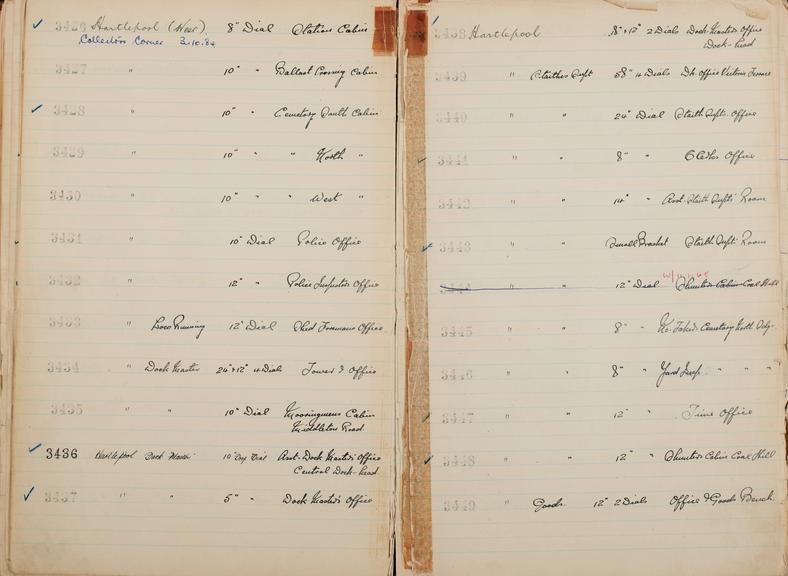 3426 Hartlepool (West). 8" Dial Station Cabin
Collectors Corner 3.10.84
3427 " 10" " Ballast Crossing Cabin
3428 " 10" " Cemetery South Cabin
3429 " 10" " " North "
3430 " 10" " " West "
3431 " 10" Dial Police Office
3432 " 12" " Police Inspectors Office
3433 " Loco Running 12" Dial Shed Foremans Office
3434 " Dock Master 24" & 12" 4 Dials Tower & Office
3435 " " 10" Dial Mooringmens Cabin
Middleton Road
3436 Hartlepool Dock Master 10" Dial Asst. Dock Master's Office
Central Dock-head
3437 " " 5" " Dock Master's Office
3438 Hartlepool 18" & 12" 2 Dials Dock Master's Office
Dock-head
3439 " Staithes Supt 4 Dials Dk. Office Victoria Terrace
3440 " " 24" Dial Staith Supts. Office
3441 " " 8" " Office
3442 " " 14" " Asst. Staith Supts' Room
3443 " " Small Bracket Staith Supts' Room
3444 " 12" Dial Shunters Cabin Coal Hill
3445 " " 8" " Cemetery North
3446 " " 8" " Yard Insp " " "
3447 " " 12" " Time Office
3448 " " 12" " Shunters Cabin Coal Hill
3449 " Goods. 12" 2 Dials Office & Goods Bench